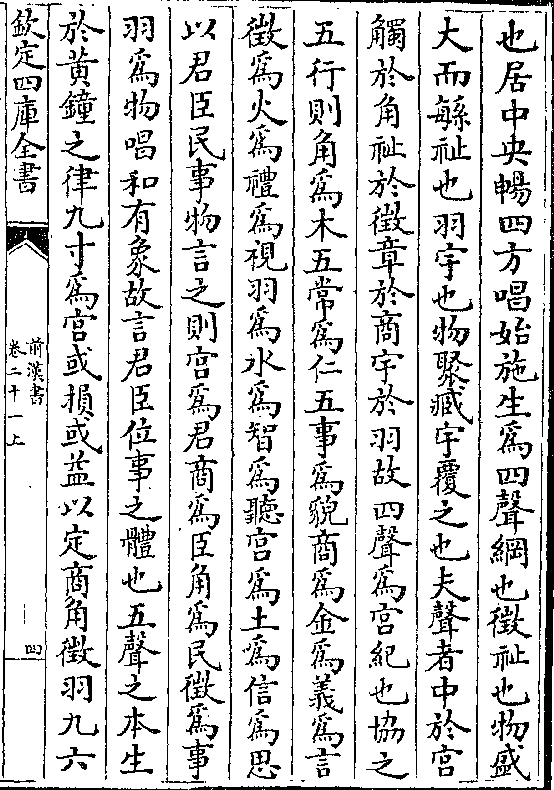 也居中央暢四方唱始施生爲四聲綱也徵祉也物盛
大而繇祉也羽宇也物聚臧宇覆之也夫聲者中於宮
觸於角祉於徵章於商宇於羽故四聲爲宮紀也協之
五行則角爲木五常爲仁五事爲貌商爲金爲義爲言
徵爲火爲禮爲視羽爲水爲智爲聽宮爲土爲信爲思
以君臣民事物言之則宮爲君商爲臣角爲民徵爲事
羽爲物唱和有象故言君臣位事之體也五聲之本生
於黃鐘之律九寸爲宮或損或益以定商角徵羽九六
欽定四庫全書
前漢書
卷二十一上
四